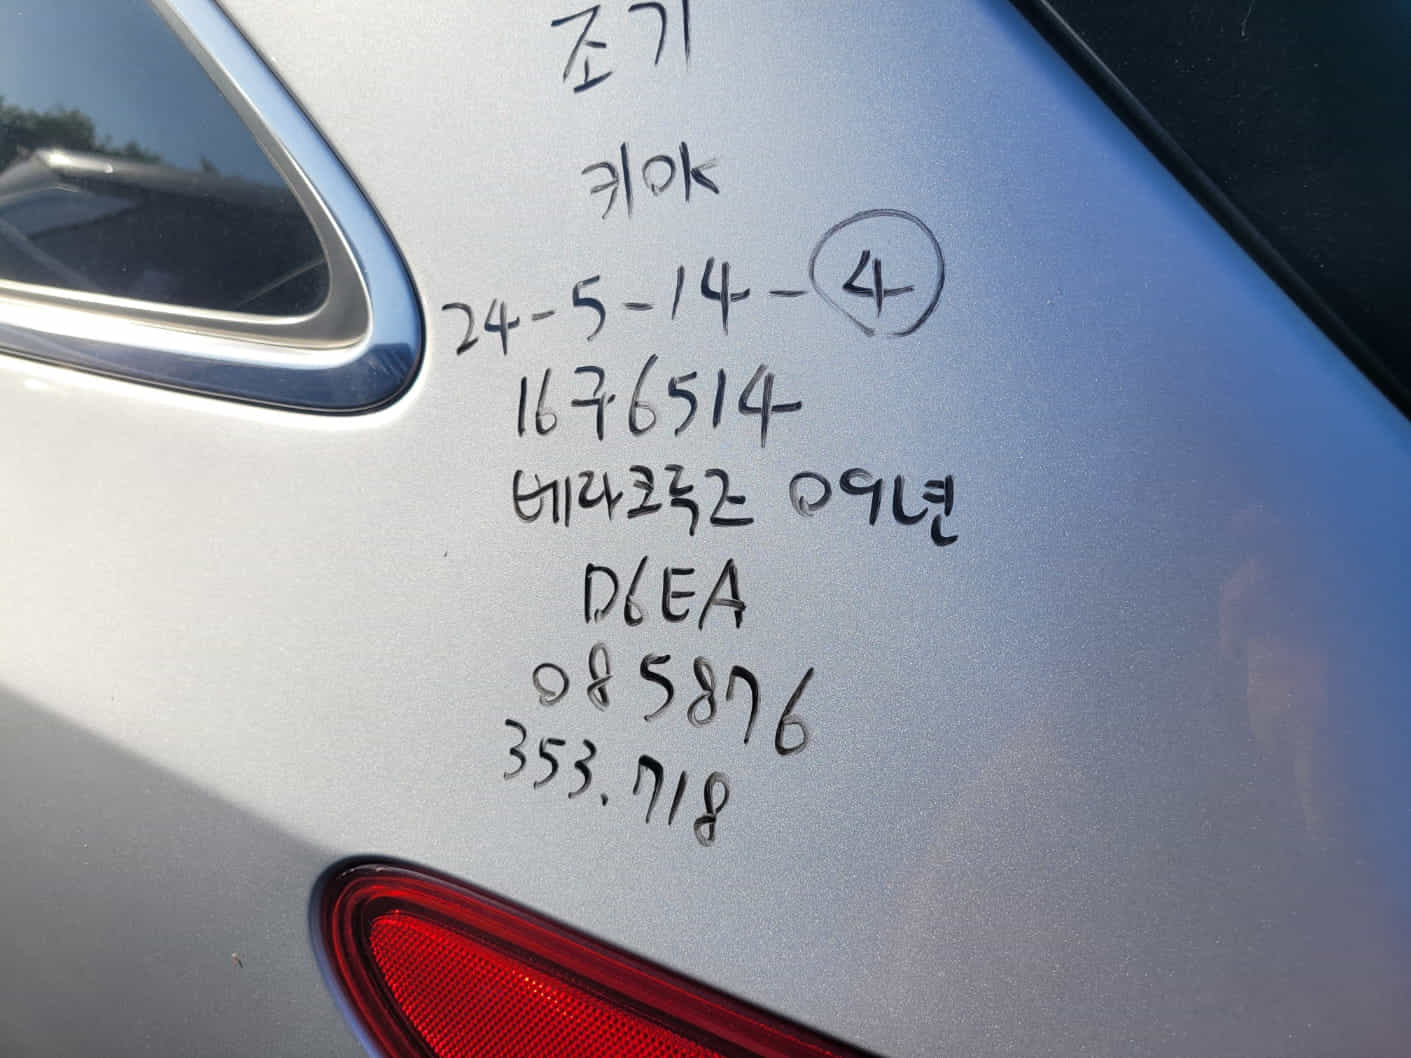 조기
키OK
24-5-14-④
16구6514
베라크루즈 09년
D6EA
085876
353.718